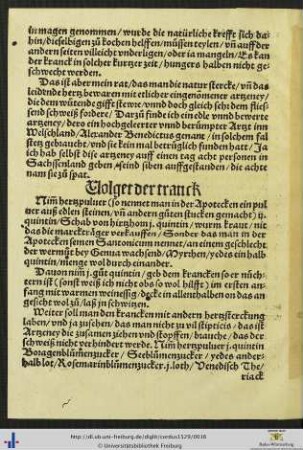 in magen genommen / wurde die natürliche krefft sich da
hin / dieselbigen zů kochen helffen / müssen teylen / vñ auff der
andern seiten villeicht vnderligen / oder ja mangeln / Es kan
der kranck in solcher kurtzer zeit / hungers halben nicht ge-
schwecht werden.
Das ist aber mein rat / das man die natur stercke / vñ das
leidende hertz bewaren mit etlicher eingenomener artzney /
die dem wütende gifft stewre / vnnd doch gleich sehr dem flies-
send schweiß fodere / Darzů finde ich ein edle vnnd bewerte
artzney / dero ein hochgelerter vnnd berümpter Artzt inn
Welschland / Alexander Benedictus genant / in solchen fäl
len gebraucht / vnd sie kein mal betrüglich funden hatt / Ja
ich hab selbst dise artzeney auff einen tag acht personen in
Sachssenland geben / seind siben auffgestanden / die acht
nam sie zů spat.
Volget der tranck
Nim hertzpuluer (so nennet man in der Apotecken ein pul
uer auß edlen steinen / vñ andern gůten stucken gemacht) ij.
quintin / Schab von hirtzhorn j. quintin / wurm kraut / nit
das die marckträger verkauffen / Sonder das man in der
Apotecken seinen Santonicum nennet / an einem geschlecht
der wermůt bey Genua wachsend / Myrrhen / yedes ein halb
quintin / menge wol durch einander.
Dauon nim j. gůt quintin / geb dem krancken so er nüch-
tern ist (sonst weiß ich nicht obs so wol hilfft) im ersten an-
fang mit warmen weinessig / decke in allenthalben on das an
gesicht wol zů / laß in schwitzen.
Weiter soll man den krancken mit andern hertzsterckung
laben / vnd ja zusehen / das man nicht zu vil stipticis / das ist
Artzney die zůsamen ziehen vnd stopffen / brauche / das der
schweiß nicht verhindert werde. Nim hertzpuluer j. quintin
Boragenblůmenzucker / Seeblůmenzucker / yedes ander-
halb lot / Rosemarinblůmenzucker j. loth / Venedisch The-
riack
http://dl.ub.uni-freiburg.de/diglit/cordus1529/0018
© Universitätsbibliothek Freiburg